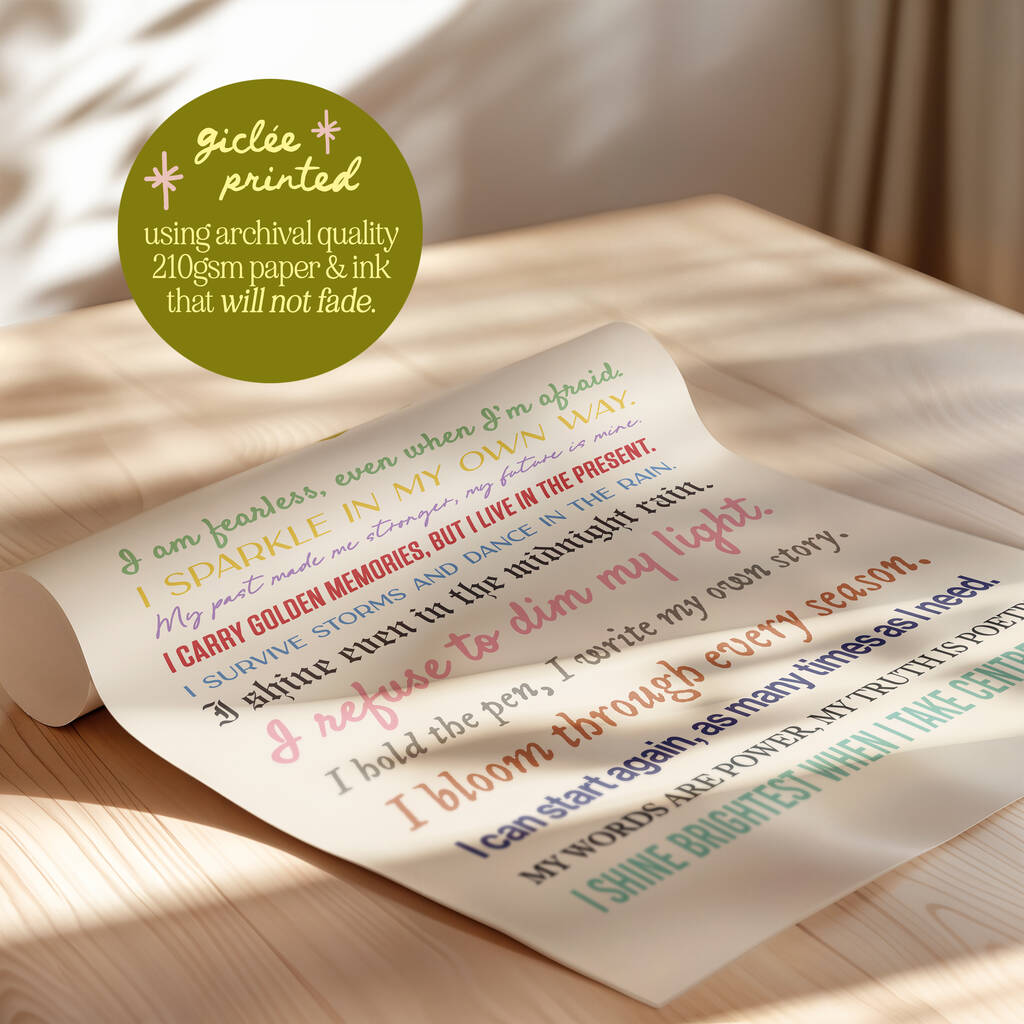 giclée
printed
using archival quality
210gsm paper & ink
that will not fade.
I am fearless, even when I'm afraid.
I SPARKLE IN MY OWN WAY.
My past made me stronger, my future is mine.
I CARRY GOLDEN MEMORIES, BUT I LIVE IN THE PRESENT.
I SURVIVE STORMS AND DANCE IN THE RAIN.
I shine even in the midnight rain.
I refuse to dim my light.
I hold the pen, I write my own story.
I bloom through every season.
I can start again, as many times as I need.
MY WORDS ARE POWER, MY TRUTH IS
I SHINE BRIGHTEST WHEN I TAKE